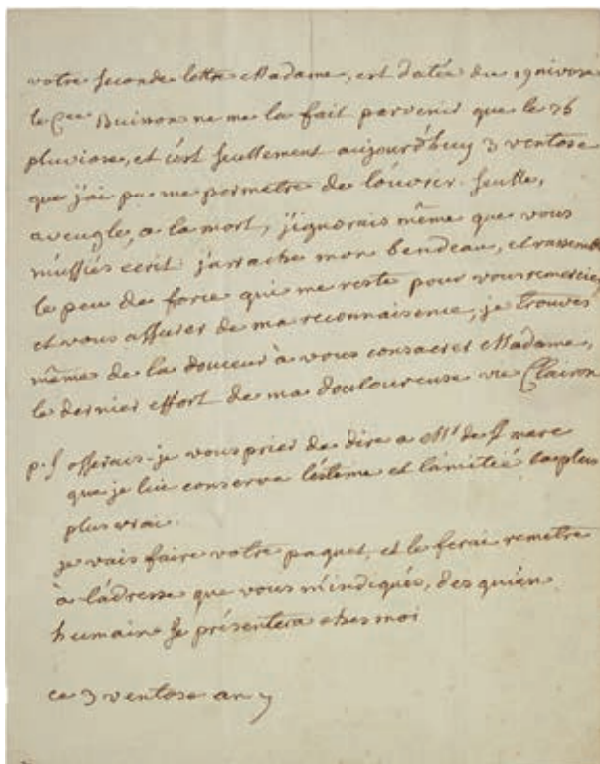 votre seconde lettre Madame, est datée du 19 nivose
le Cen Buisson ne me la fait parvenir que le 26
pluviose, et c'est seullement aujourd'huy 3 ventose
que j'ai pu me permetre de l'ouvrir. seulle,
aveugle, a la mort, j'ignorais même que vous
m'ussiés ecrit. j'arrache mon bendeau, et rassemble
le peu de force qui me reste pour vous remercier,
et vous assurer de ma reconnaisence, je trouves
même de la douceur à vous consacrer Madame,
le dernier effort de ma douloureuse vie Clairon
p.s oserais-je vous prier de dire a Mr de St marc
que je lui conserve l'estime et l'amitié la plus
plus vrai.
je vais faire votre paquet, et le ferai remetre
à l'adresse que vous m'indiqués, des qu'un
humain se présentera ches moi
ce 3 ventose an 7